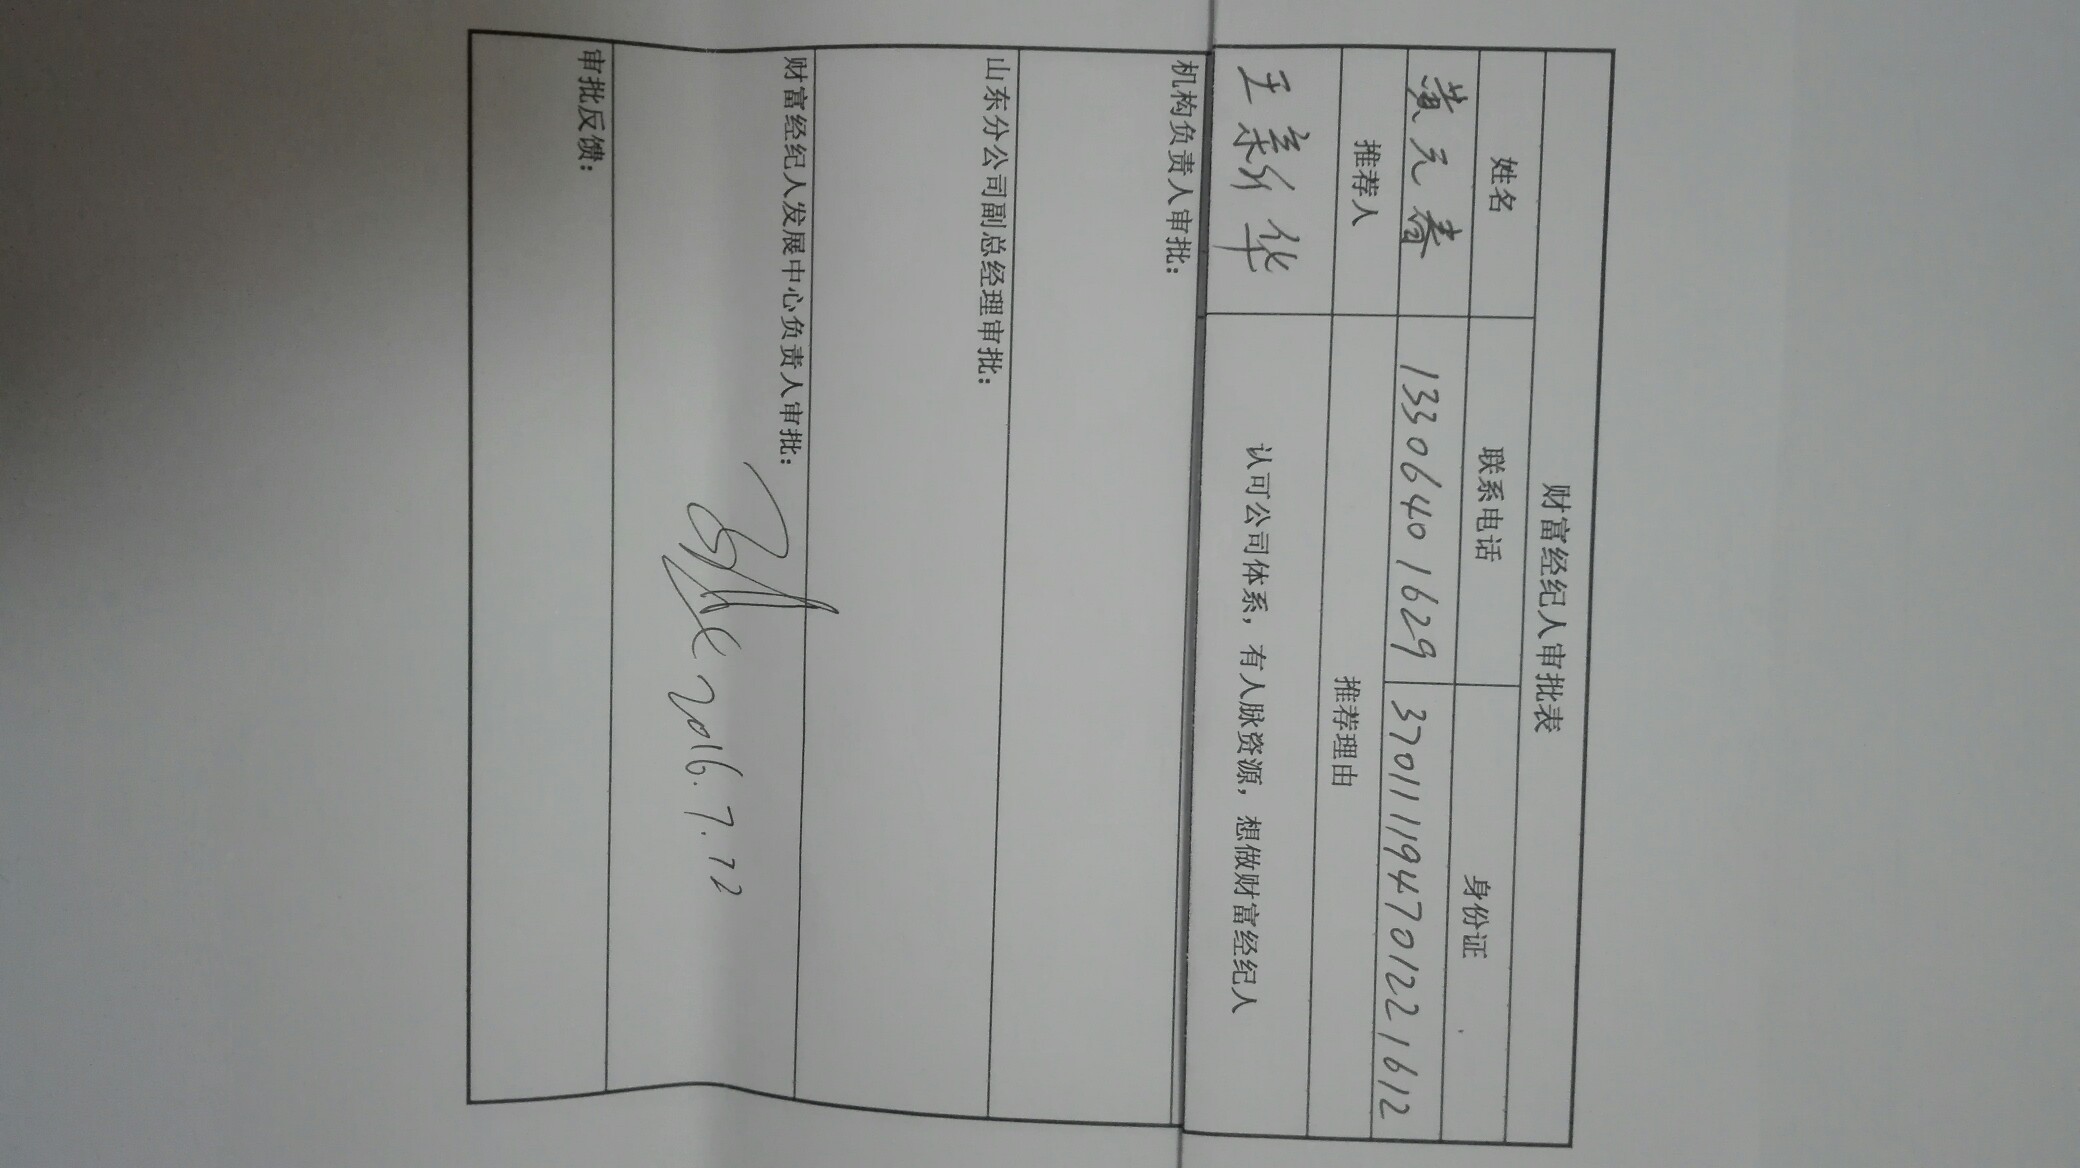 财富经纪人审批表
姓名 联系电话 身份证
黄元春 13306401629 370111194701221612
推荐人 推荐理由
王新华 认可公司体系，有人脉资源，想做财富经纪人
机构负责人审批：
山东分公司副总经理审批：
财富经纪人发展中心负责人审批：
2016.7.22
审批反馈：